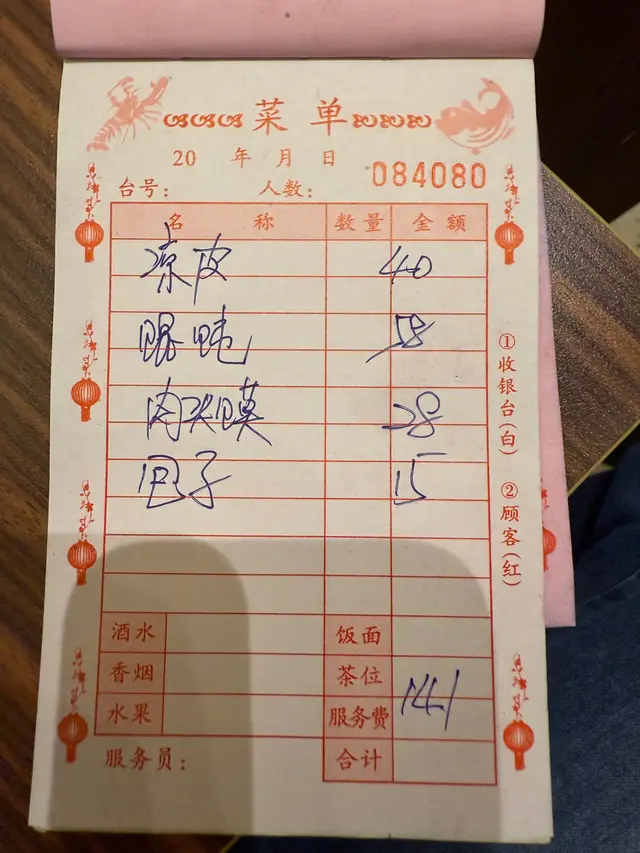 菜单
20 年 月 日 084080
台号： 人数：
名 称 数量 金额
凉皮 40
58
肉夹馍 28
包子 15
酒水 饭面
香烟 茶位
水果 服务费 141
服务员： 合计
①收银台(白) ②顾客(红)